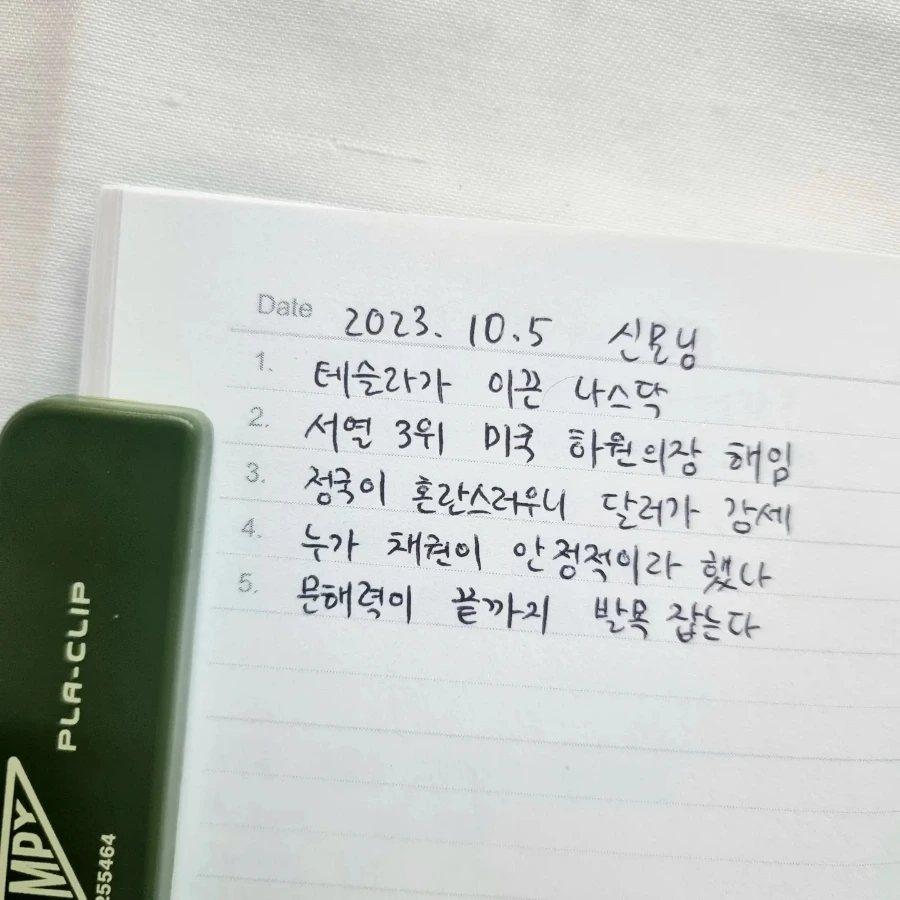 Date 2023. 10. 5 신문님
1. 테슬라가 이끈 나스닥
2. 서열 3위 미국 하원의장 해임
3. 정국이 혼란스러우니 달러가 강세
4. 누가 채권이 안정적이라 했나
5. 문해력이 끝까지 발목 잡는다
PLA-CLIP
MPY
255464